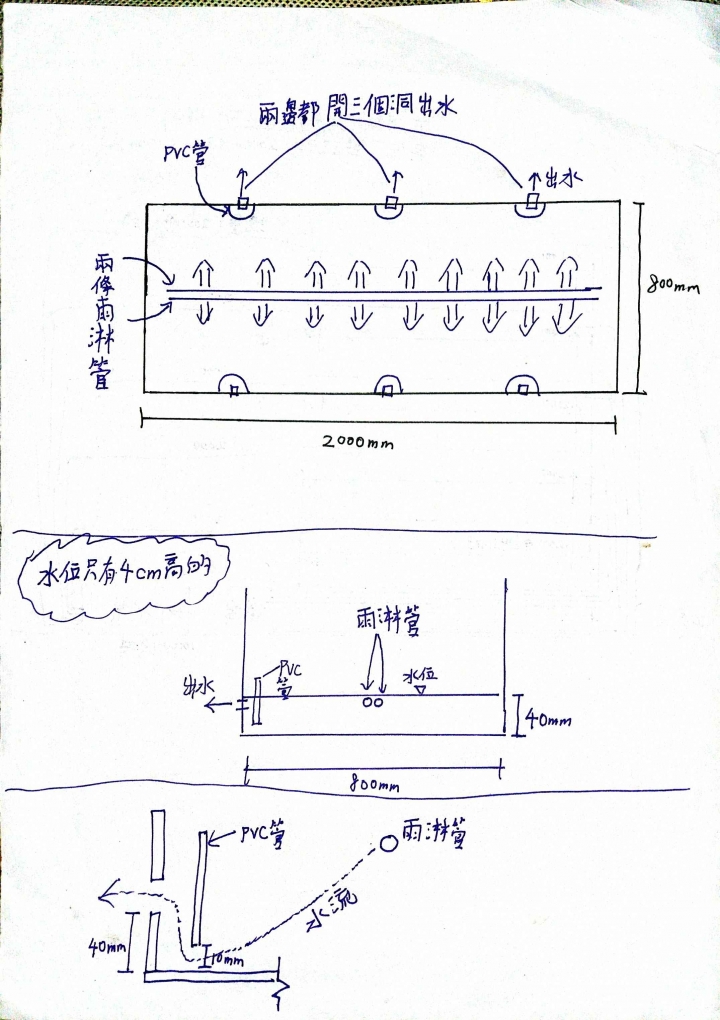 兩邊都開三個洞出水
PVC管
出水
兩條雨淋管
800mm
2000mm
水位只有4cm高的
雨淋管
PVC管
水位
出水
40mm
800mm
PVC管
雨淋管
水流
40mm
10mm